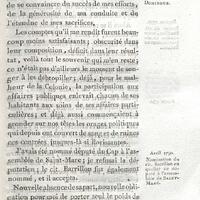 de se convaincre du succès de mes efforts,
de la générosité de ma conduite et de
l'étendue de mes sacrifices.
Les comptes qu'il me rendit furent beaucoup
moins satisfaisants; obscurité dans
leur composition, déficit dans leur résultat,
voilà tout le souvenir qui m'en reste;
car je n'eus pas même le moment de songer
à les débrouiller; déjà, pour le malheur
de la Colonie, la participation aux
affaires publiques enlevait chacun de ses
habitants aux soins de ses affaires particulières;
et déjà aussi commençaient à
gronder autour de nous les orages politiques
qui depuis ont couvert de sang et de ruines
ces contrées, jusques-là si florissantes.
J'avais été nommé député du Cap à l'assemblée
de Saint-Marc; je refusai la députation;
le cit. Barrillon fut également
nommé, et accepta.
Nouvelle absence de sa part, nouvelle obligation
pour moi de porter seul le poids de
Domingue.
Avril 1790.
Nomination du
cit. Barrillon en
qualité de député
à l'assemblée
de Saint-
Marc.